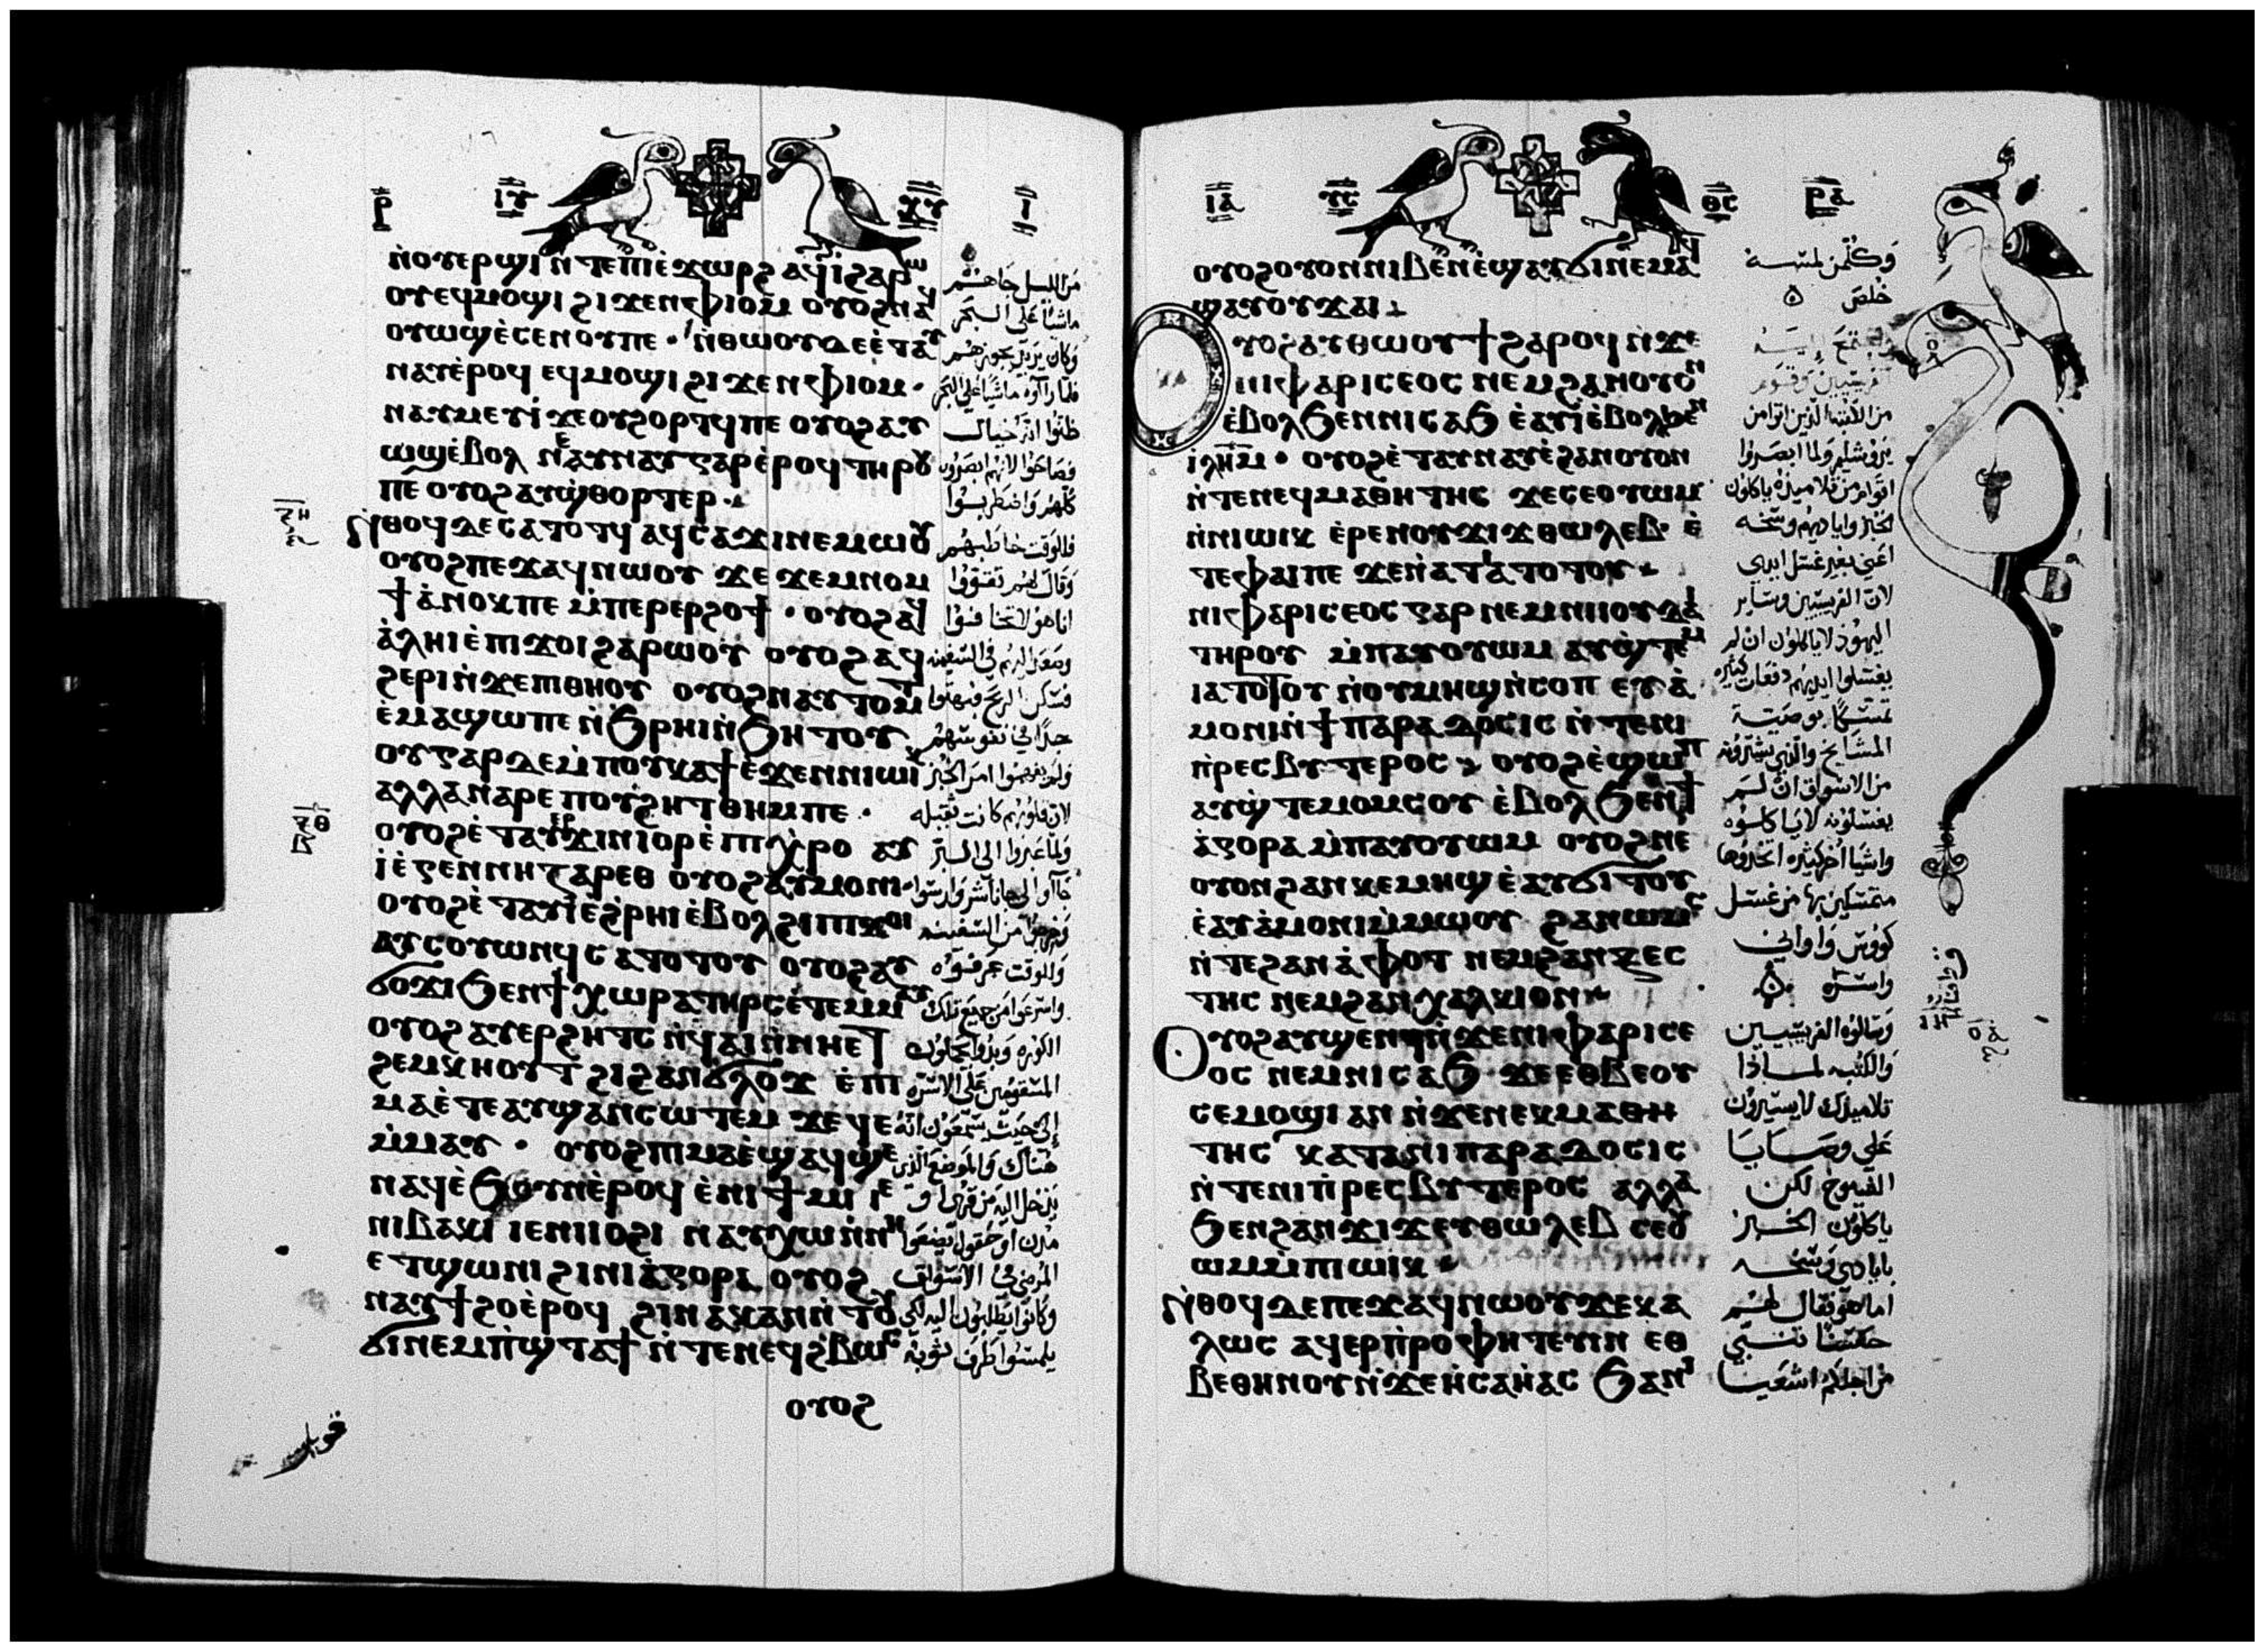 ⲣ ⲓⲩ ⲭⲩ ⲓ
ⲛ̀ⲟⲩⲉⲣϣⲓ ⲛ̀ⲧⲉⲡⲓⲉ̀ϫⲱⲣϩ ⲁϥⲓ̀ϩⲁⲣⲱ
ⲟⲩⲉϥⲙⲟϣⲓ ϩⲓϫⲉⲛⲫⲓⲟⲙ ⲟⲩⲟϩⲛⲁϥ
ⲟⲩⲱϣⲉ̀ⲥⲉⲛⲟⲩⲡⲉ · ⲛ̀ⲑⲱⲟⲩⲇⲉⲉ̀ⲧⲁⲩ
ⲛⲁⲩⲉ̀ⲣⲟϥ ⲉϥⲙⲟϣⲓ ϩⲓϫⲉⲛⲫⲓⲟⲙ ·
ⲛⲁⲩⲙⲉⲩⲓ̀ ϫⲉⲟⲩϩⲟⲣⲧϥⲡⲉ ⲟⲩⲟϩⲁⲩ
ⲱϣⲉ̀ⲃⲟⲗ ⲛⲉⲁⲩⲛⲁⲩⲅⲁⲣⲉ̀ⲣⲟϥⲧⲏⲣⲟⲩ
ⲡⲉ ⲟⲩⲟϩⲁⲩϣ̀ⲑⲟⲣⲧⲉⲣ ·
ⲛ̀ⲑⲟϥⲇⲉⲥⲁⲧⲟⲧϥ ⲁϥⲥⲁϫⲓⲛⲉⲙⲱⲟⲩ
ⲟⲩⲟϩⲡⲉϫⲁϥⲛⲱⲟⲩ ϫⲉ ϫⲉⲙⲛⲟⲙ
ϯ ⲁ̀ⲛⲟⲕⲡⲉ ⲙ̀ⲡⲉⲣⲉⲣϩⲟϯ · ⲟⲩⲟϩⲁϥ
ⲁ̀ⲗⲏⲓⲉ̀ⲡⲓϫⲟⲓ ϩⲁⲣⲱⲟⲩ ⲟⲩⲟϩⲁϥ
ϩⲉⲣⲓⲛ̀ϫⲉⲡⲓⲑⲏⲟⲩ ⲟⲩⲟϩⲛⲁⲩⲧⲟⲙⲧ
ⲉ̀ⲙⲁϣⲱⲡⲉ ⲛ̀ϧⲣⲏⲓⲛ̀ϧⲏⲧⲟⲩ
ⲟⲩⲅⲁⲣⲇⲉⲙ̀ⲡⲟⲩⲕⲁϯⲉ̀ϫⲉⲛⲛⲓⲱⲓ
ⲁⲗⲗⲁⲛⲁⲣⲉ ⲡⲟⲩϩⲏⲧ ⲑⲏⲙⲡⲉ ·
ⲟⲩⲟϩⲉ̀ⲧⲁⲩⲉⲣϫⲓⲛⲓⲟⲣⲉ̀ⲡⲓⲭⲣⲟ ⲁⲩ
ⲓ̀ⲉ̀ⲅⲉⲛⲛⲏⲥⲁⲣⲉⲑ ⲟⲩⲟϩⲁⲩⲙⲟⲛⲓ ·
ⲟⲩⲟϩⲉ̀ⲧⲁⲩⲓ̀ⲉ̀ϩⲣⲏⲓⲉ̀ⲃⲟⲗϩⲓⲡⲓϫⲟⲓ
ⲁⲩⲥⲟⲩⲱⲛϥⲥⲁⲧⲟⲧⲟⲩ ⲟⲩⲟϩⲁⲩ
ϭⲟϫⲓϧⲉⲛϯⲭⲱⲣⲁⲧⲏⲣⲥⲉ̀ⲧⲉⲙⲙⲁⲩ
ⲟⲩⲟϩⲁⲩⲉⲣϩⲏⲧⲥ ⲛ̀ϥⲁⲓⲛ̀ⲛⲏⲉⲧ
ϩⲉⲙⲕⲏⲟⲩⲧ ϩⲓϩⲁⲛϭⲗⲟϫ ⲉ̀ⲡⲓ
ⲙⲁⲉ̀ⲧⲉⲁⲩϣⲁⲛⲥⲱⲧⲉⲙ ϫⲉϥⲉ
ⲙ̀ⲙⲁⲩ · ⲟⲩⲟϩⲡⲓⲙⲁⲉ̀ϣⲁϥϣⲉ
ⲛⲁϥⲉ̀ϧⲟⲩⲛⲉ̀ⲣⲟϥ ⲉ̀ⲛⲓϯⲙⲓ ⲓⲉ
ⲛⲓⲃⲁⲕⲓ ⲓⲉⲛⲓⲓⲟϩⲓ ⲛⲁⲩⲭⲱⲛ̀ⲛⲏ
ⲉⲧϣⲱⲛⲓ ϩⲓⲛⲓⲁ̀ⲅⲟⲣⲁ ⲟⲩⲟϩ
ⲛⲁⲩϯϩⲟⲉ̀ⲣⲟϥ ϩⲓⲛⲁⲕⲁⲛⲛ̀ⲧⲟⲩ
ϭⲓⲛⲉⲙⲡ̀ϣⲧⲁϯ ⲛ̀ⲧⲉⲛⲉϥϩ̀ⲃⲱⲥ
ⲟⲩⲟϩ
من الليل جا هم
ماشيًا على البحر
وكان يريد يجوزهم
فلما راوه ماشيًا على البحر
ظنوا انه خيال
فصاحوا لانهم ابصروه
كلهم واضطربوا
فللوقت خاطبهم
وقال لهم تقووا
انا هو لا تخافوا
وصعد اليهم في السفينه
فسكن الريح فبهتوا
جدًا في نفوسهم
ولم يفهموا امر الخبز
لان قلوبهم كانت ثقيله
ولما عبروا الى البر
جاوا الى جاناشر وارسوا
وخرجوا من السفينه
وللوقت عرفوه
واسرعوا من جميع تلك
الكوره وبدوا يحملون
المسقومين على الاسره
الى حيث يسمعون انه
هناك والموضع الذي
يدخل اليه من قرى او
مدن او حقول يضعوا
المرضى في الاسواق
وكانوا يطلبون اليه لكي
يلمسوا طرف ثوبه
ⲓⲁ ⲩⲥ ⲑⲥ ⲣⲁ
ⲟⲩⲟϩⲟⲩⲟⲛⲛⲓⲃⲉⲛⲉ̀ϣⲁⲩϭⲓⲛⲉⲙⲁϥ
ϣⲁⲩⲟⲩϫⲁⲓ
ⲟⲩⲟϩⲁⲩⲑⲱⲟⲩϯϩⲁⲣⲟϥ ⲛ̀ϫⲉ
ⲛⲓⲫⲁⲣⲓⲥⲉⲟⲥ ⲛⲉⲙϩⲁⲛⲟⲩⲟⲛ
ⲉ̀ⲃⲟⲗϧⲉⲛⲛⲓⲥⲁϧ ⲉ̀ⲁⲩⲓ̀ⲉ̀ⲃⲟⲗϧⲉⲛ
ⲓⲗⲏⲙ · ⲟⲩⲟϩⲉ̀ⲧⲁⲩⲛⲁⲩⲉ̀ϩⲁⲛⲟⲩⲟⲛ
ⲛ̀ⲧⲉⲛⲉϥⲙⲁⲑⲏⲧⲏⲥ ϫⲉⲥⲉⲟⲩⲱⲙ
ⲛ̀ⲛⲓⲱⲓⲕ ⲉ̀ⲣⲉⲛⲟⲩϫⲓϫ ⲑⲱⲗⲉⲃ · ⲉ̀
ⲧⲉⲫⲁⲓⲡⲉ ϫⲉⲛ̀ⲁⲧⲓⲁⲧⲟⲧⲟⲩ
ⲛⲓⲫⲁⲣⲓⲥⲉⲟⲥ ⲅⲁⲣ ⲛⲉⲙⲛⲓⲓⲟⲩⲇⲁⲓ
ⲧⲏⲣⲟⲩ ⲙ̀ⲡⲁⲩⲟⲩⲱⲙ ⲁⲩϣ̀ⲧⲉⲙ
ⲓⲁⲧⲟⲧⲟⲩ ⲛ̀ⲟⲩⲙⲏϣⲛ̀ⲥⲟⲡ ⲉⲩⲁ̀
ⲙⲟⲛⲓⲛ̀ϯⲡⲁⲣⲁⲇⲟⲥⲓⲥ ⲛ̀ⲧⲉⲛⲓ
ⲡ̀ⲣⲉⲥⲃⲩⲧⲉⲣⲟⲥ ⲟⲩⲟϩⲉ̀ϣⲱⲡ
ⲁⲩϣ̀ⲧⲉⲙⲟⲙⲥⲟⲩ ⲉ̀ⲃⲟⲗϧⲉⲛϯ
ⲁ̀ⲅⲟⲣⲁ ⲙ̀ⲡⲁⲩⲟⲩⲱⲙ ⲟⲩⲟϩⲛⲉ
ⲟⲩⲟⲛϩⲁⲛⲕⲉⲙⲏϣ ⲉ̀ⲁⲩϭⲓⲧⲟⲩ
ⲉ̀ⲁⲩⲁ̀ⲙⲟⲛⲓⲙ̀ⲙⲱⲟⲩ ϩⲁⲛⲱⲙⲥ
ⲛ̀ⲧⲉϩⲁⲛⲁ̀ⲫⲟⲧ ⲛⲉⲙϩⲁⲛⲝⲉⲥ
ⲧⲏⲥ ⲛⲉⲙϩⲁⲛⲭⲁⲗⲕⲓⲟⲛ
ⲟⲩⲟϩⲁⲩϣⲉⲛϥⲛ̀ϫⲉⲛⲓⲫⲁⲣⲓⲥⲉ
ⲟⲥ ⲛⲉⲙⲛⲓⲥⲁϧ ϫⲉⲉⲑⲃⲉⲟⲩ
ⲥⲉⲙⲟϣⲓ ⲁⲛ ⲛ̀ϫⲉⲛⲉⲕⲙⲁⲑⲏ
ⲧⲏⲥ ⲕⲁⲧⲁⲛⲓⲡⲁⲣⲁⲇⲟⲥⲓⲥ
ⲛ̀ⲧⲉⲛⲓⲡ̀ⲣⲉⲥⲃⲩⲧⲉⲣⲟⲥ ⲁⲗⲗⲁ
ϧⲉⲛϩⲁⲛϫⲓϫⲉⲩⲑⲱⲗⲉⲃ ⲥⲉⲟⲩ
ⲱⲙⲙ̀ⲡⲓⲱⲓⲕ
ⲛ̀ⲑⲟϥⲇⲉⲡⲉϫⲁϥⲛⲱⲟⲩϫⲉⲕⲁ
ⲗⲱⲥ ⲁϥⲉⲣⲡ̀ⲣⲟⲫⲏⲧⲉⲩⲓⲛ ⲉⲑ
ⲃⲉⲑⲏⲛⲟⲩⲛ̀ϫⲉⲏ̀ⲥⲁⲏ̀ⲁⲥ ϧⲁⲛⲓ
وكلمن لمسه
خلص
واجتمع اليه
الفريسيين وقوم
من الكتبه الذين اتوا من
يروشليم ولما ابصروا
اقوام من تلاميذه ياكلون
الخبز واياديهم وسخه
اعني بغير غسل ايدي
لان الفريسيين وساير
اليهود لا ياكلون ان لم
يغسلوا ايديهم دفعات كثيره
تمسكًا بوصية
المشايخ والذي يشترونه
من الاسواق ان لم
يغسلونه لا ياكلوه
واشيا اخر كثيره اتخذوها
متمسكين بها من غسل
كووس واواني
واسره
وسالوه الفريسيين
والكتبه لماذا
تلاميذك لا يسيرون
على وصايا
الشيوخ لكن
ياكلون الخبز
بايادي وسخه
اما هو فقال لهم
حسنًا تنبي
من اجلكم اشعيا